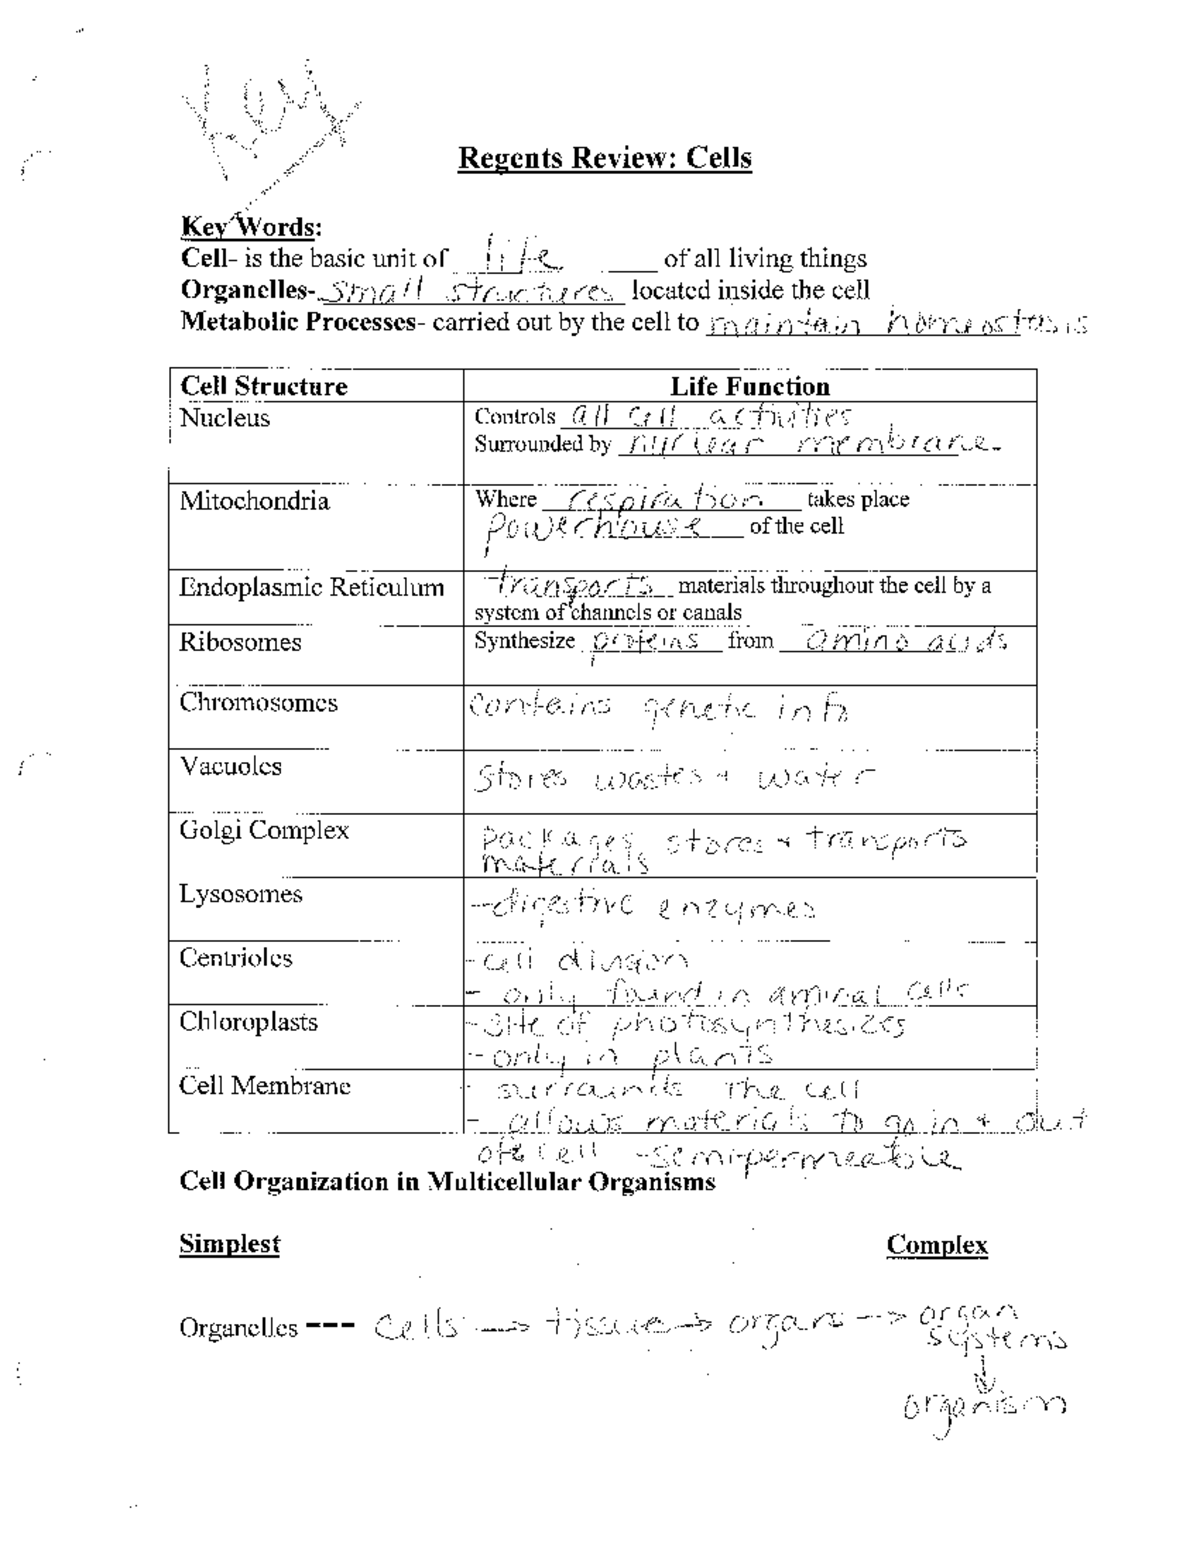 Key
Regents Review: Cells
Key Words:
Cell- is the basic unit of life of all living things
Organelles- small structures located inside the cell
Metabolic Processes- carried out by the cell to maintain homeostasis
Cell Structure Life Function
Nucleus Controls all cell activities
Surrounded by nuclear membrane.
Mitochondria Where respiration takes place
powerhouse of the cell
Endoplasmic Reticulum transports materials throughout the cell by a
system of channels or canals
Ribosomes Synthesize proteins from amino acids
Chromosomes contains genetic info
Vacuoles stores wastes + water
Golgi Complex packages, stores + transports
materials
Lysosomes -digestive enzymes
Centrioles -cell divison
- only found in amical cells
Chloroplasts -site of photosynthesizes
-only in plants
Cell Membrane - surrounds the cell
- allows materials to go in + out
of cell -semi-permeable
Cell Organization in Multicellular Organisms
Simplest Complex
Organelles --- cells → tissue → organs --> organ
systems
↓
organism